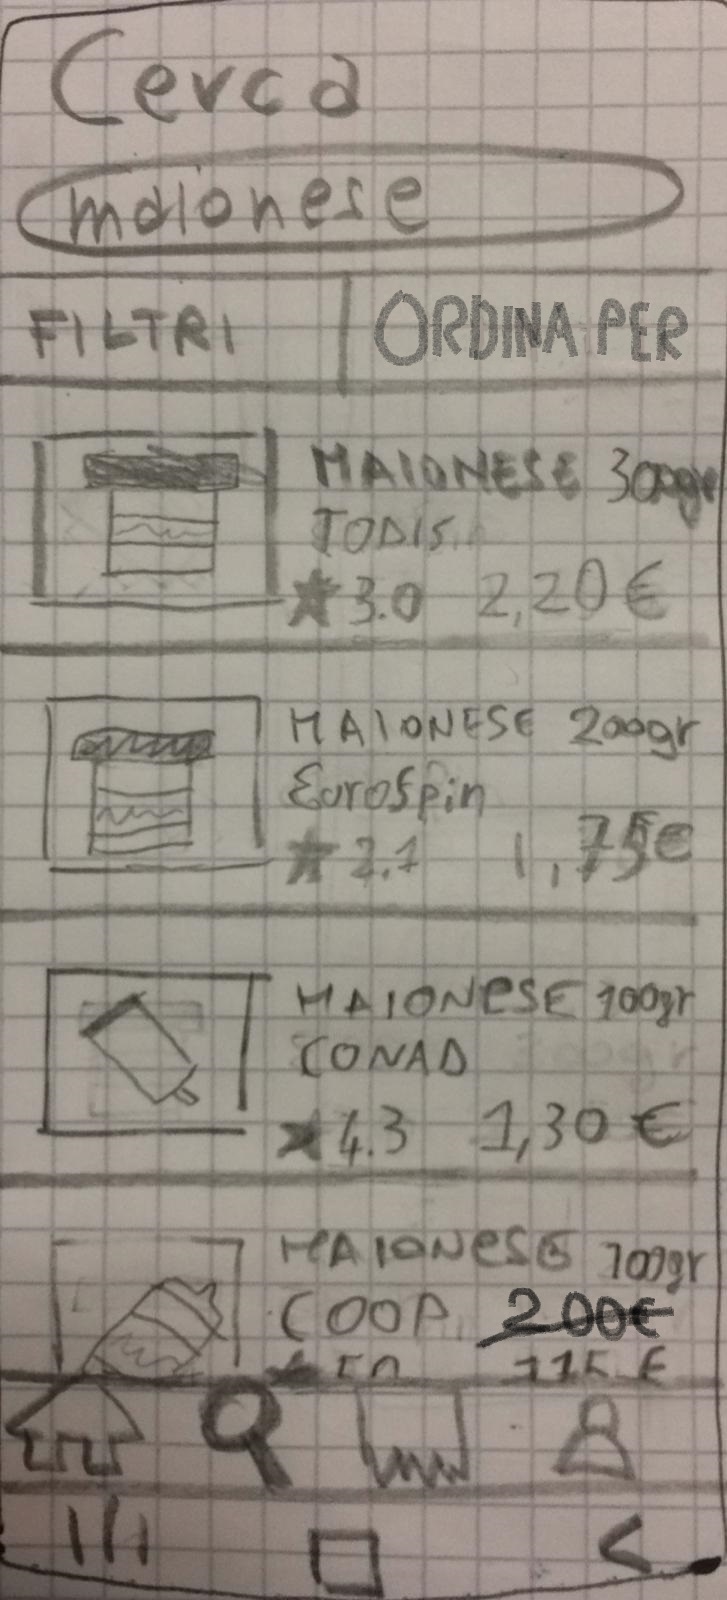 Cerca
maionese
FILTRI ORDINA PER
MAIONESE 300gr
TODIS
3.0 2,20€
MAIONESE 200gr
Eurospin
1,75€
MAIONESE 100gr
CONAD
4.3 1,30€
MAIONESE 100gr
COOP 200€